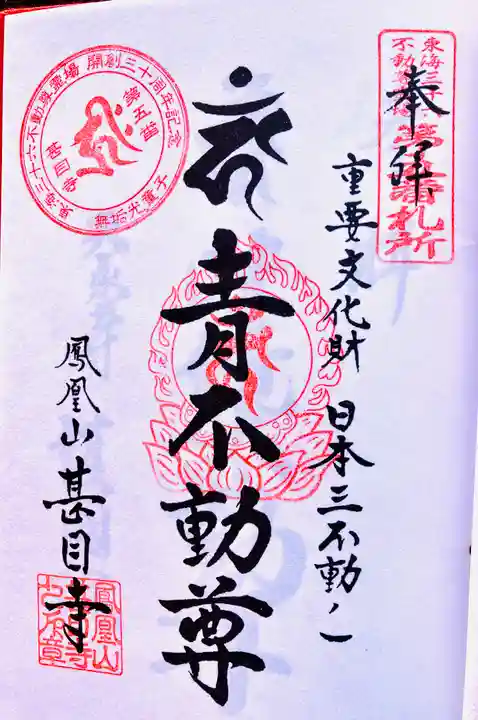 奉拝
東海三十六
不動尊霊場
第五番札所
重要文化財 日本三不動ノ一
青不動尊
鳳凰山 甚目寺
東海三十六不動尊霊場 開創三十周年記念
第五番
甚目寺
無垢光童子
鳳凰山